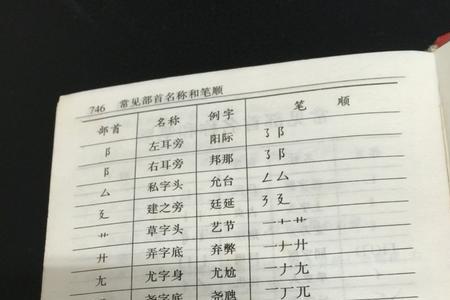 746 常见部首名称和笔顺
部首 名称 例字 笔顺
阝 左耳旁 阳际 ㇌阝
阝 右耳旁 邦那 ㇌阝
厶 私字头 允台 ㇜厶
廴 建之旁 廷延 ㇋廴
艹 草字头 艺节 一十艹
廾 弄字底 弃弊 一ナ廾
尢 尤字身 尤尬 一ナ尢
尧字底 尧 一丆兀